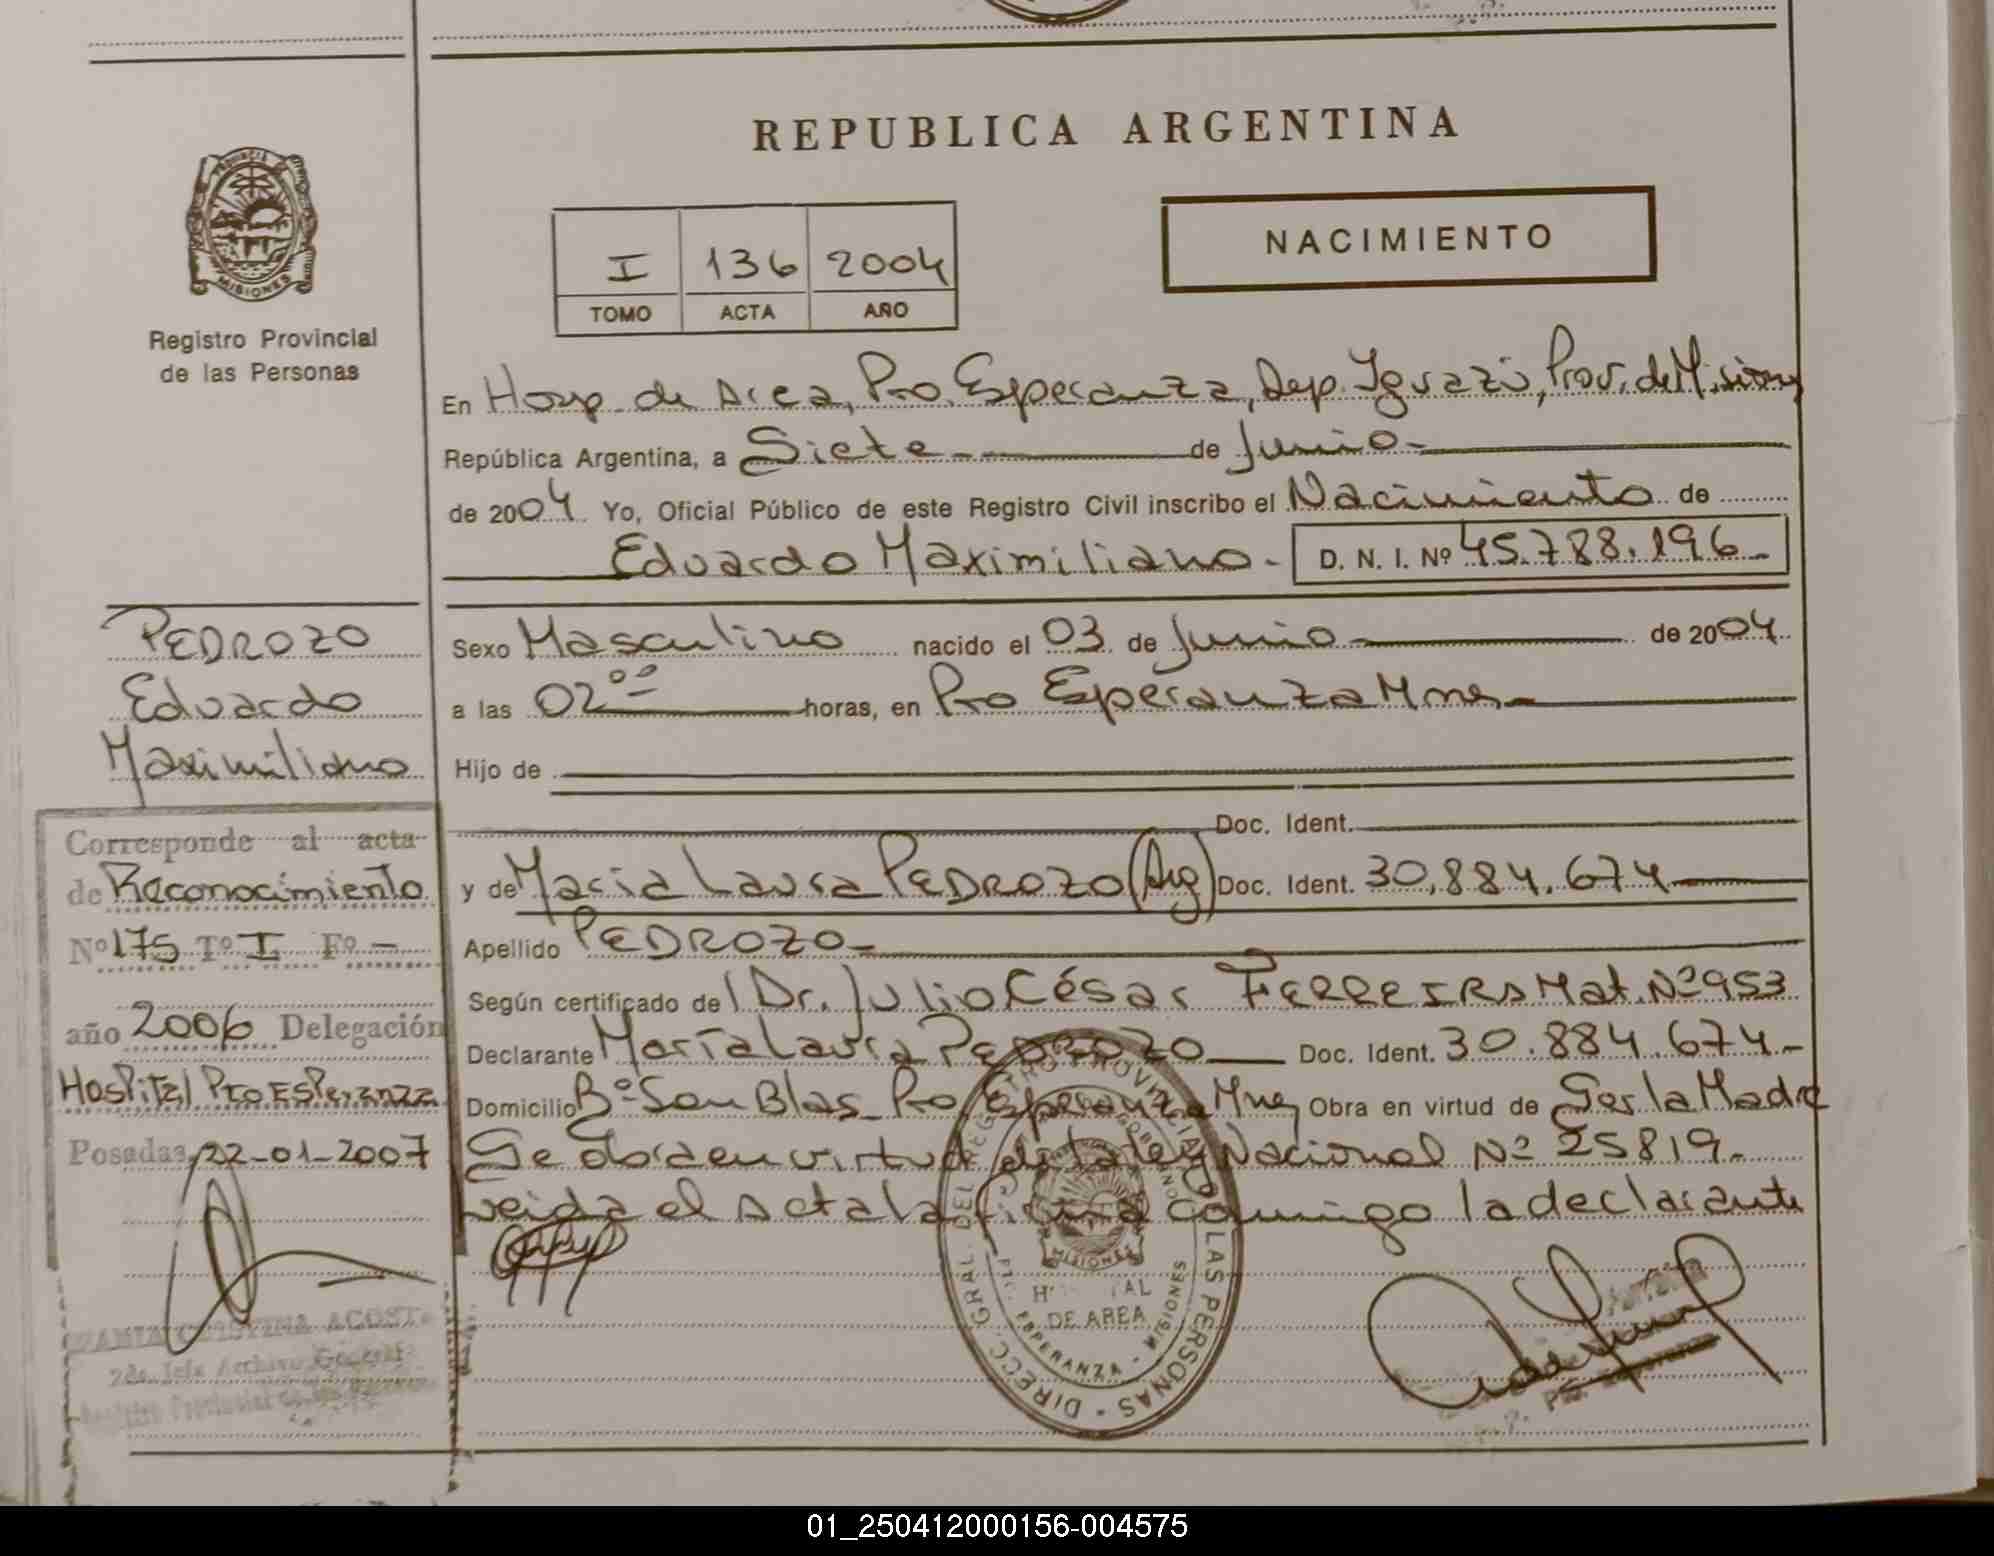 REPUBLICA ARGENTINA
NACIMIENTO
I 136 2004
TOMO ACTA AÑO
MISIONES
Registro Provincial
de las Personas
En Hosp. de Area, Pto. Esperanza, Dep. Iguazú, Prov. de Misiones
República Argentina, a Siete de Junio
de 2004 Yo, Oficial Público de este Registro Civil inscribo el Nacimiento de
Eduardo Maximiliano - D. N. I. Nº 45.788.196
Sexo Masculino nacido el 03 de Junio de 2004
a las 02ºº horas, en Pto Esperanza Mnes
Hijo de
Doc. Ident.
y de Maria Laura PEDROZO (Arg) Doc. Ident. 30.884.674
Apellido PEDROZO
Según certificado de Dr. Julio César FERREIRA Mat. Nº 953
Declarante María Laura PEDROZO Doc. Ident. 30.884.674
Domicilio Bº San Blas Pto Esperanza Mnes Obra en virtud de Ser la Madre
Se labra en virtud de la ley Nacional Nº 25819.
Leida el Acta la firma conmigo la declarante
PEDROZO
Eduardo
Maximiliano
Corresponde al acta
de Reconocimiento
Nº 175 Tº I Fº -
año 2006 Delegación
Hospital Pto Esperanza
Posadas, 22-01-2007
MARIA CRISTINA ACOSTA
2da. Jefe Archivo General
DIRECC. GRAL. DEL REGISTRO PROVINCIAL DE LAS PERSONAS
MISIONES
HOSPITAL
DE AREA
ESPERANZA - MISIONES
01_250412000156-004575